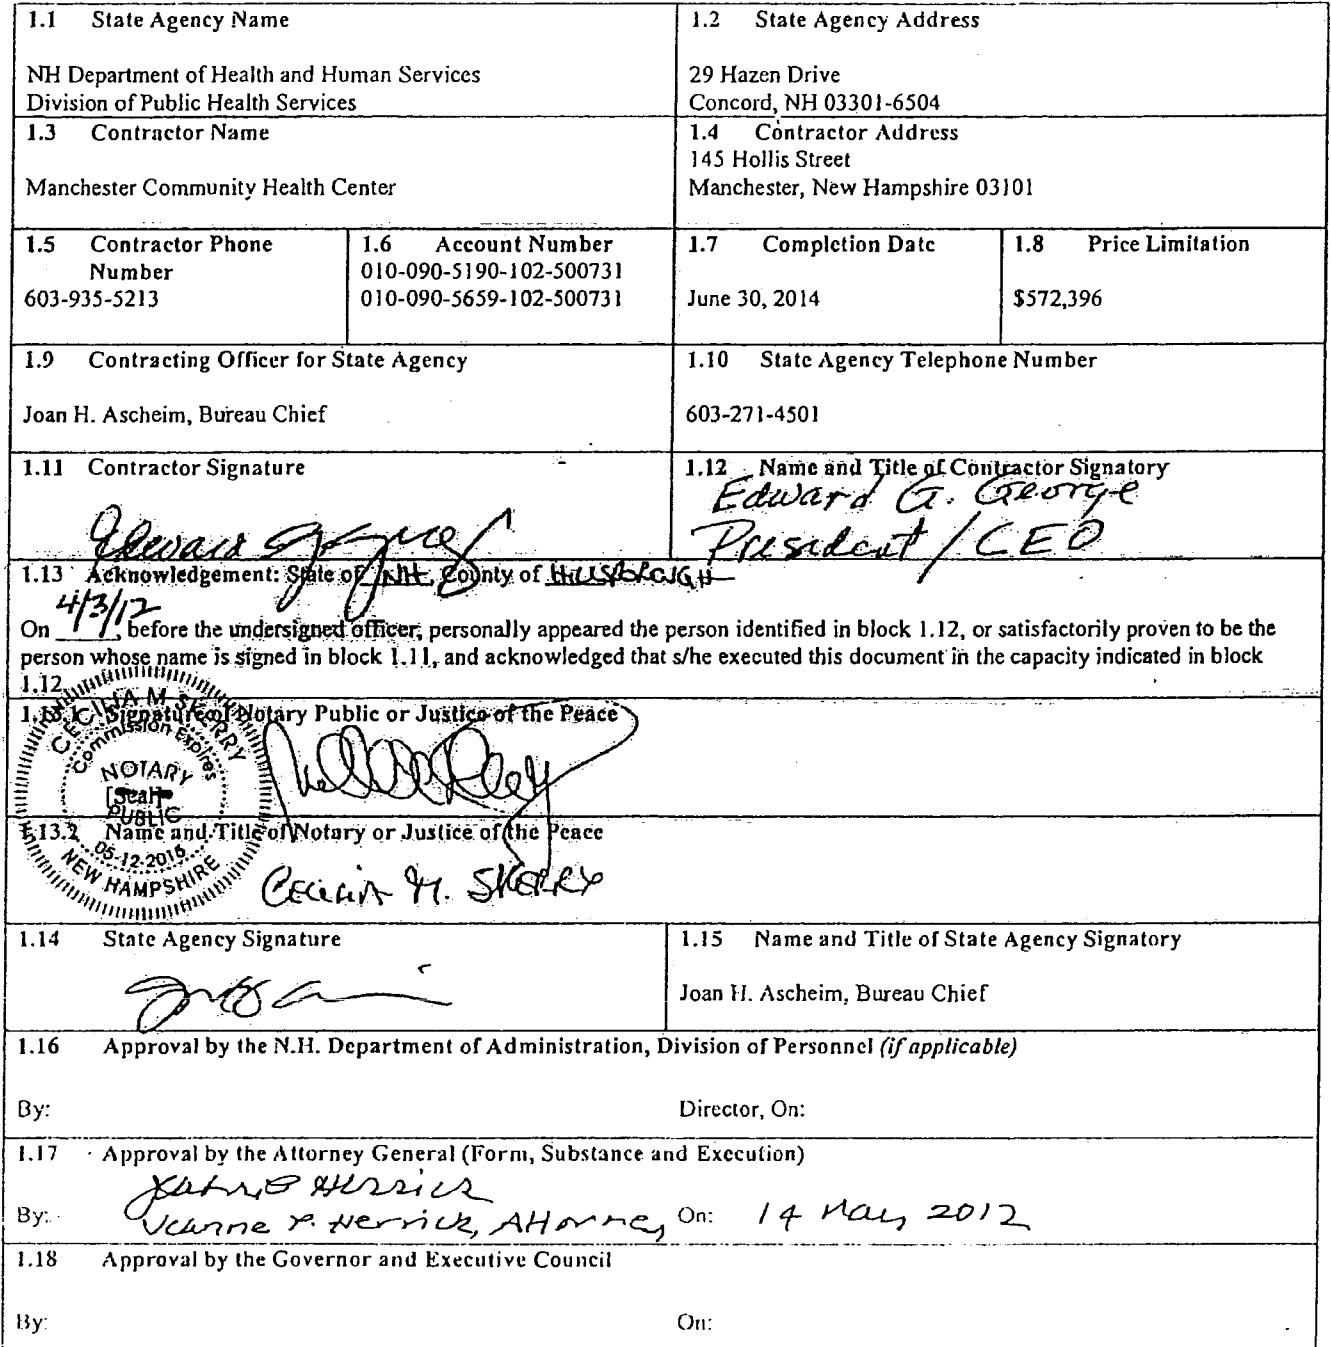 1.1 State Agency Name
NH Department of Health and Human Services
Division of Public Health Services
1.2 State Agency Address
29 Hazen Drive
Concord, NH 03301-6504
1.3 Contractor Name
Manchester Community Health Center
1.4 Contractor Address
145 Hollis Street
Manchester, New Hampshire 03101
1.5 Contractor Phone
Number
603-935-5213
1.6 Account Number
010-090-5190-102-500731
010-090-5659-102-500731
1.7 Completion Date
June 30, 2014
1.8 Price Limitation
$572,396
1.9 Contracting Officer for State Agency
Joan H. Ascheim, Bureau Chief
1.10 State Agency Telephone Number
603-271-4501
1.11 Contractor Signature
1.12 Name and Title of Contractor Signatory
Edward G. George
President / CEO
1.13 Acknowledgement: State of NH, County of HILLSBOROUGH
On 4/3/12, before the undersigned officer, personally appeared the person identified in block 1.12, or satisfactorily proven to be the
person whose name is signed in block 1.11, and acknowledged that s/he executed this document in the capacity indicated in block
1.12.
1.13.1 Signature of Notary Public or Justice of the Peace
CECILIA M. SKERRY
Commission Expires
NOTARY
[Seal]
PUBLIC
05-12-2015
NEW HAMPSHIRE
1.13.2 Name and Title of Notary or Justice of the Peace
CECILIA M. SKERRY
1.14 State Agency Signature
1.15 Name and Title of State Agency Signatory
Joan H. Ascheim, Bureau Chief
1.16 Approval by the N.H. Department of Administration, Division of Personnel (if applicable)
By: Director, On:
1.17 Approval by the Attorney General (Form, Substance and Execution)
By: Jeanne P. Herrick, Attorney On: 14 May 2012
1.18 Approval by the Governor and Executive Council
By: On: